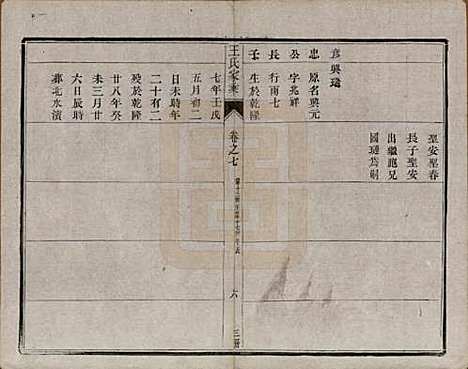 聖安聖春
長子聖安
出繼胞兄
國璉為嗣
忠 原名興元
公 字兆祥
長 行南七
壬 生於乾隆
王氏家乘
卷之七
六
三册
七年壬戌
五月初二
日未時年
二十有二
歿於乾隆
廿八年癸
未三月廿
六日辰時
葬北水濱